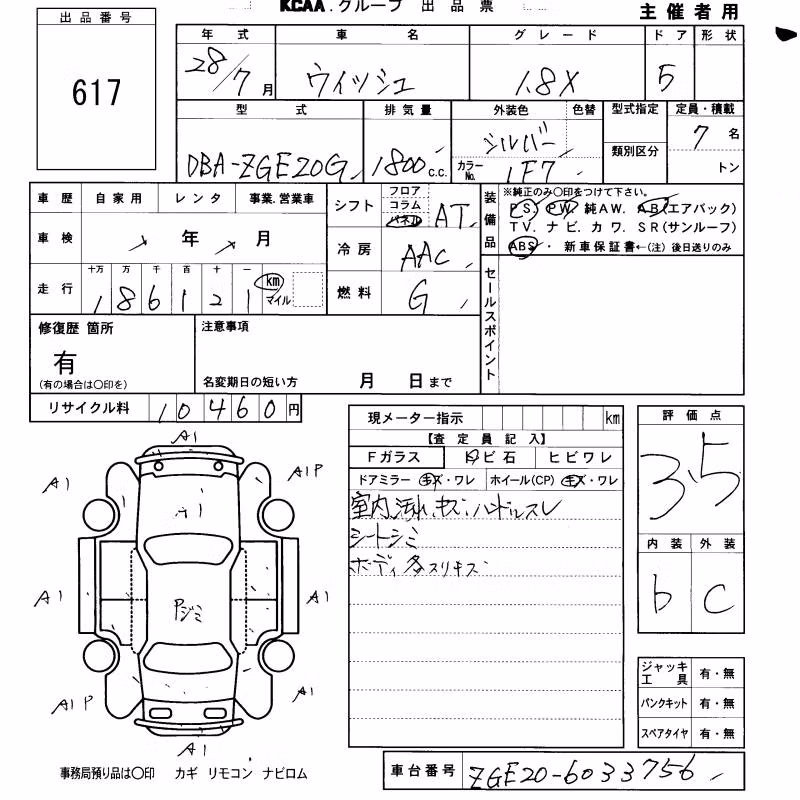 KCAA.グループ 出品票
主催者用
出品番号
617
年式 車名 グレード ドア 形状
28/7月 ウィッシュ 1.8X 5
型式 排気量 外装色 色替 型式指定 定員・積載
DBA-ZGE20G 1800c.c. シルバー 7名
カラーNo. 1F7 類別区分 トン
車歴 自家用 レンタ 事業.営業車
車検 年 月
走行 十万 万 千 百 十 一
186121 km マイル
シフト フロア コラム パネル AT
冷房 AAC
燃料 G
装備品 ※純正のみ〇印をつけて下さい。
PS. PW. 純AW. AB(エアバック)
TV. ナビ. カワ. SR(サンルーフ)
ABS・新車保証書←(注)後日送りのみ
セールスポイント
修復歴 箇所
有
(有の場合は〇印を)
注意事項
名変期日の短い方 月 日まで
リサイクル料 10460円
現メーター指示 km
【査定員記入】
Fガラス トビ石 ヒビワレ
ドアミラー キズ・ワレ ホイール(CP) キズ・ワレ
室内汚れ、キズ、ハンドルスレ
シートシミ
ボディ各スリキズ
評価点
3.5
内装 外装
b C
A1
A1 A1P
A1
A1 Pジミ A1
A1P A1
A1
ジャッキ工具 有・無
パンクキット 有・無
スペアタイヤ 有・無
事務局預り品は〇印 カギ リモコン ナビロム
車台番号 ZGE20-6033756